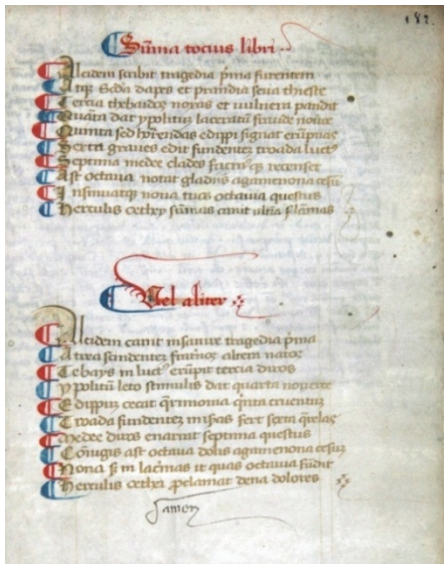 182.
Sūma tocius libri
Alcidem scribit tragedia pͥma furentem
Atqꝫ scd̄a dapes et prandia seua thieste
Tercia thebaydos noxas et vulnera pandit
Quarta dat ypolitū laceratū fraude nouerce
Quinta sed horrendas edippi signat
Sexta graues edit fundentes troada luctꝰ
Septima medee clades recenset
Ast octaua notat gladiū agamenona
Insinuatqꝫ nona tuos octauia questus
Herculis oethey sūmas canit vltīa flāmas
Vel aliter
Alcidem canit insanire tragedia pͥma
Atrea scindentem natos
Tebays in luctꝰ erūpit tercia diros
ypolitū leto stimulis dat quarta nouerce
Edippus cecat qͥnta cruentus
Troada fundentem fert sexta q̄relas
Medee diros enarrat septima questus
Cōiugis ast octaua dolis agamenona
Nona sͥ in lacͥmas it quas octauia fūdit
Herculis oethei ꝓclamat dena dolores